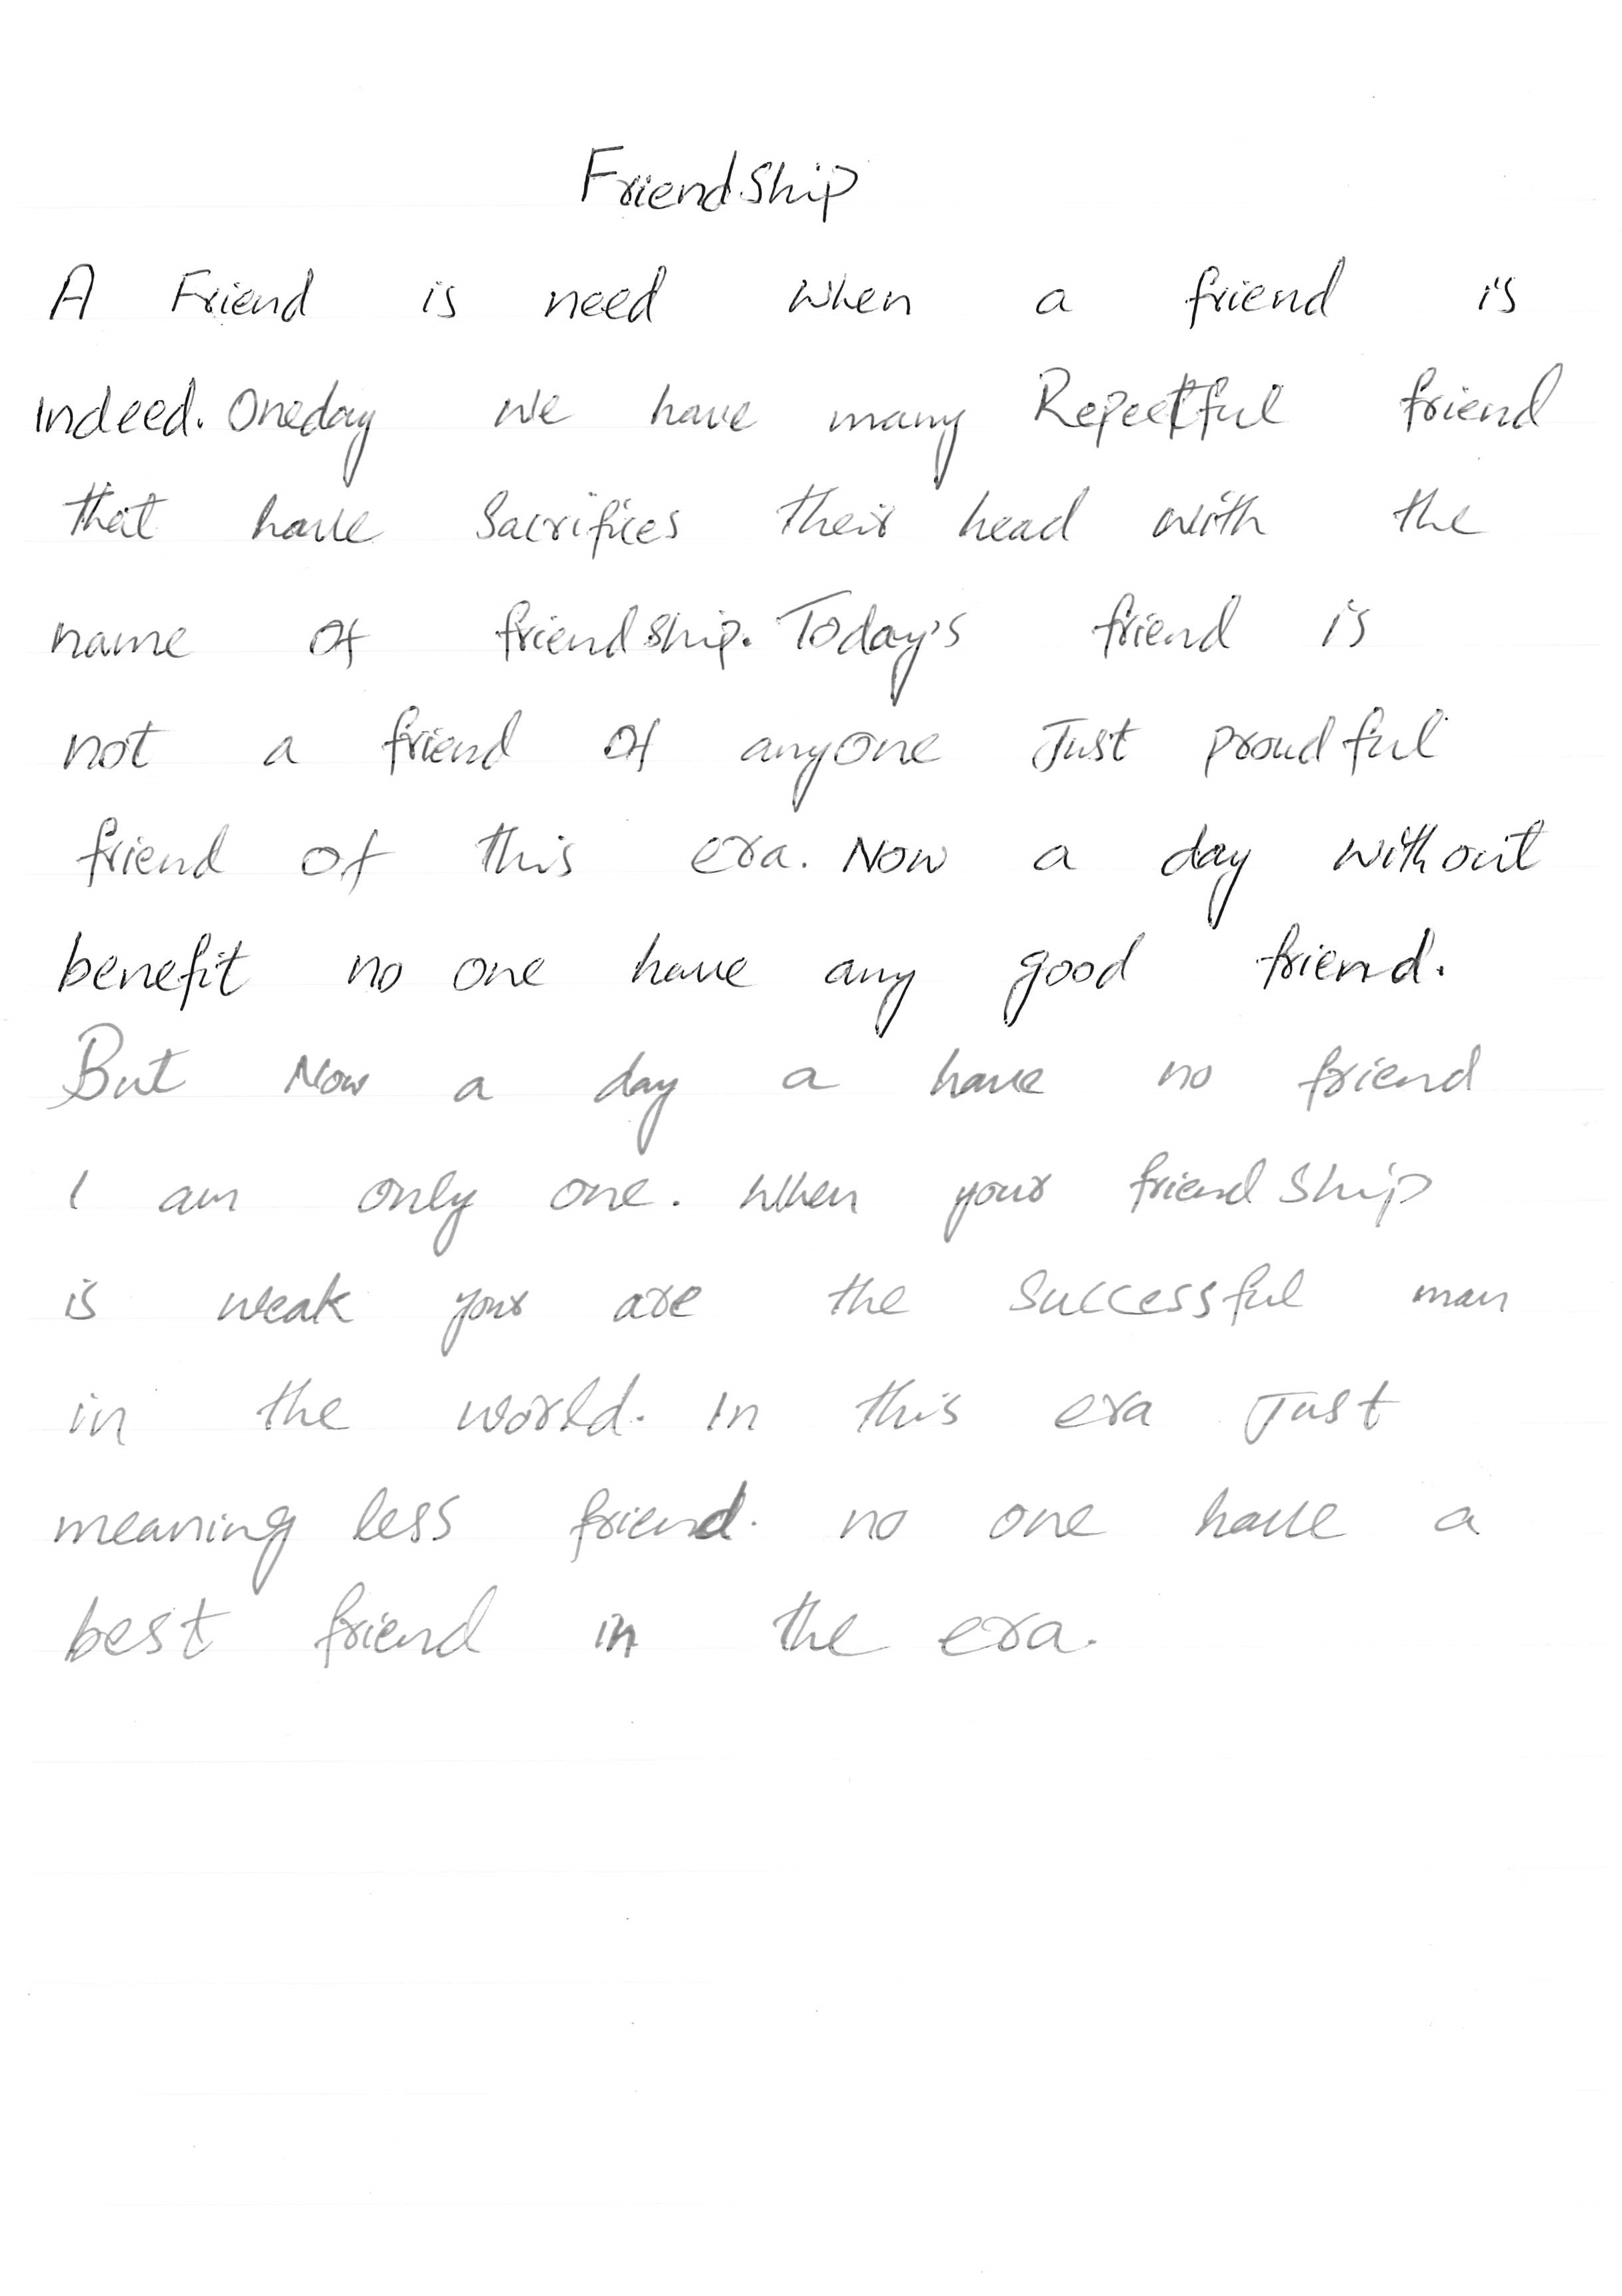 FriendShip
A Friend is need when a friend is
indeed. Oneday we have many Repectful friend
that have Sacrifices their head with the
name of friendship. Today's friend is
not a friend of anyone Just proudful
friend of this era. Now a day without
benefit no one have any good friend.
But Now a day a have no friend
I am only one. When your friendShip
is weak your are the Successful man
in the world. In this era Just
meaning less friend. no one have a
best friend in the era.